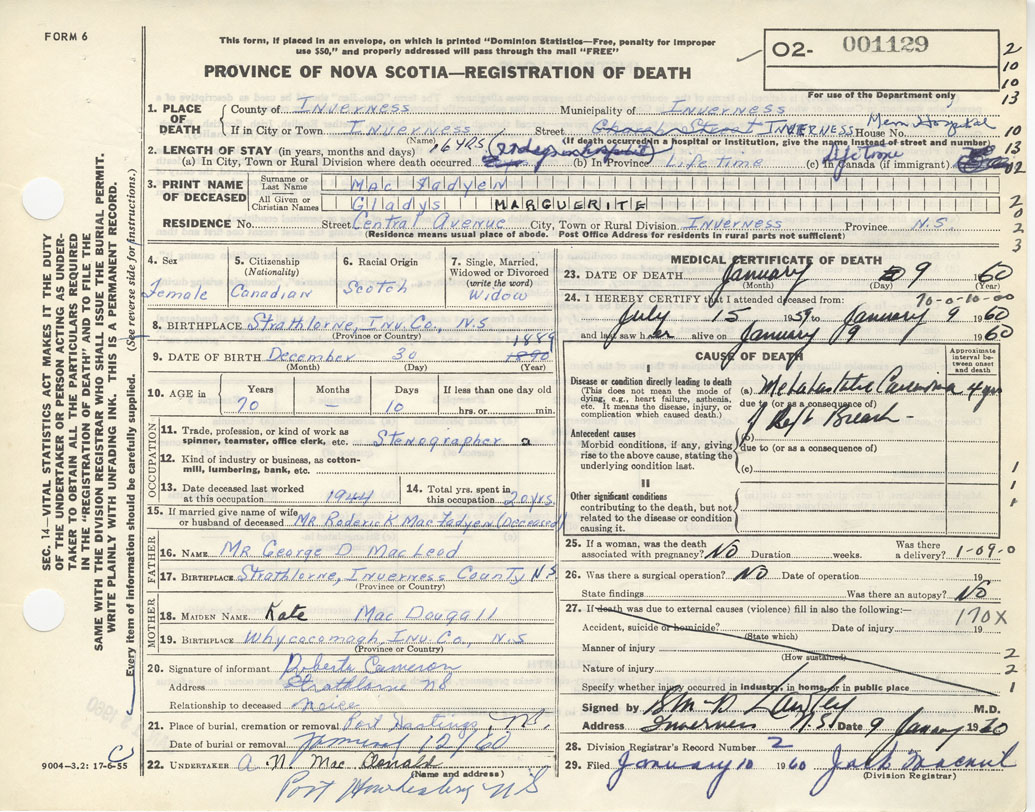 FORM 6
This form, if placed in an envelope, on which is printed "Dominion Statistics—Free, penalty for improper
use $50," and properly addressed will pass through the mail "FREE"
O2- 001129
For use of the Department only
2
10
10
13
PROVINCE OF NOVA SCOTIA—REGISTRATION OF DEATH
1. PLACE OF DEATH
County of Inverness Municipality of Inverness
If in City or Town Inverness Street INVERNESS Mem Hospital House No. 10
(Name) (If death occurred in a hospital or institution, give the name instead of street and number)
2. LENGTH OF STAY (in years, months and days) 16 YRS
(a) In City, Town or Rural Division where death occurred (b) In Province Life time (c) In Canada (if immigrant) Lifetime
3. PRINT NAME OF DECEASED
Surname or Last Name Mac Fadyen
All Given or Christian Names Gladys MARGUERITE
RESIDENCE No. Street Central Avenue City, Town or Rural Division Inverness Province N.S.
(Residence means usual place of abode. Post Office Address for residents in rural parts not sufficient)
4. Sex Female
5. Citizenship (Nationality) Canadian
6. Racial Origin Scotch
7. Single, Married, Widowed or Divorced (write the word) Widow
8. BIRTHPLACE Strathlorne, Inv. Co., N.S
(Province or Country)
9. DATE OF BIRTH December 30 1889 1890
(Month) (Day) (Year)
10. AGE in Years 70 Months – Days 10 If less than one day old hrs. or min.
OCCUPATION
11. Trade, profession, or kind of work as spinner, teamster, office clerk, etc. Stenographer
12. Kind of industry or business, as cotton-mill, lumbering, bank, etc.
13. Date deceased last worked at this occupation 1944
14. Total yrs. spent in this occupation 20 yrs
15. If married give name of wife or husband of deceased MR Roderick MacFadyen (Deceased)
FATHER
16. NAME MR George D MacLeod
17. BIRTHPLACE Strathlorne, Inverness County N S
(Province or Country)
MOTHER
18. MAIDEN NAME Kate Mac Dougall
19. BIRTHPLACE Whycocomagh, Inv. Co., N.S
(Province or Country)
20. Signature of informant Roberta Cameron
Address Strathlorne NS
Relationship to deceased Neice
21. Place of burial, cremation or removal Port Hastings, N.S.
Date of burial or removal January 12/60
22. UNDERTAKER A N. Mac Donald
(Name and address)
Port Hawkesbury NS
MEDICAL CERTIFICATE OF DEATH
23. DATE OF DEATH January 9 1960
(Month) (Day) (Year)
24. I HEREBY CERTIFY that I attended deceased from: 70-0-10-00
July 15 1959 to January 9 1960
and last saw her alive on January 9 1960
CAUSE OF DEATH
Approximate interval between onset and death
I
Disease or condition directly leading to death
(This does not mean the mode of dying, e.g., heart failure, asthenia, etc. It means the disease, injury, or complication which caused death.)
(a) Metastatic Carcinoma 4 yrs
due to (or as a consequence of)
of Left Breast
Antecedent causes
Morbid conditions, if any, giving rise to the above cause, stating the underlying condition last.
(b)
due to (or as a consequence of)
(c)
II
Other significant conditions
contributing to the death, but not related to the disease or condition causing it.
25. If a woman, was the death associated with pregnancy? NO Duration weeks. Was there a delivery? 1-09-0
26. Was there a surgical operation? NO Date of operation 19
State findings Was there an autopsy? NO
27. If death was due to external causes (violence) fill in also the following:— 170X
Accident, suicide or homicide? Date of injury 19
(State which)
Manner of injury
(How sustained)
Nature of injury
Specify whether injury occurred in industry, in home, or in public place
Signed by M.D.
Address Inverness N.S. Date 9 January 1960
28. Division Registrar's Record Number 2
29. Filed January 10 1960 Jack Macneil
(Division Registrar)
SEC. 14—VITAL STATISTICS ACT MAKES IT THE DUTY
OF THE UNDERTAKER OR PERSON ACTING AS UNDER-
TAKER TO OBTAIN ALL THE PARTICULARS REQUIRED
IN THE "REGISTRATION OF DEATH" AND TO FILE THE
SAME WITH THE DIVISION REGISTRAR WHO SHALL ISSUE THE BURIAL PERMIT.
WRITE PLAINLY WITH UNFADING INK. THIS IS A PERMANENT RECORD.
Every item of information should be carefully supplied. (See reverse side for instructions.)
9004-3.2: 17-6-55